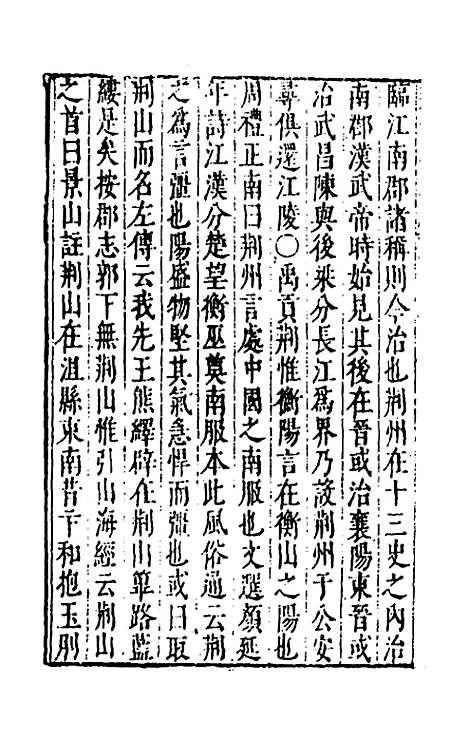 臨江南郡諸稱則今治也荆州在十三史之內治
南郡漢武帝時始見其後在晉或治襄陽東晉或
治武昌陳與後梁分長江為界乃設荆州于公安
尋俱還江陵〇禹貢荆惟衡陽言在衡山之陽也
周禮正南曰荆州言處中國之南服也文選顏延
年詩江漢分楚望衡巫奠南服本此風俗通云荆
之為言彊也陽盛物堅其氣急悍而彊也或曰取
荆山而名左傳云我先王熊繹辟在荆山篳路藍
縷是矣按郡志郭下無荆山惟引山海經云荆山
之首曰景山註荆山在沮縣東南昔卞和抱玉刖